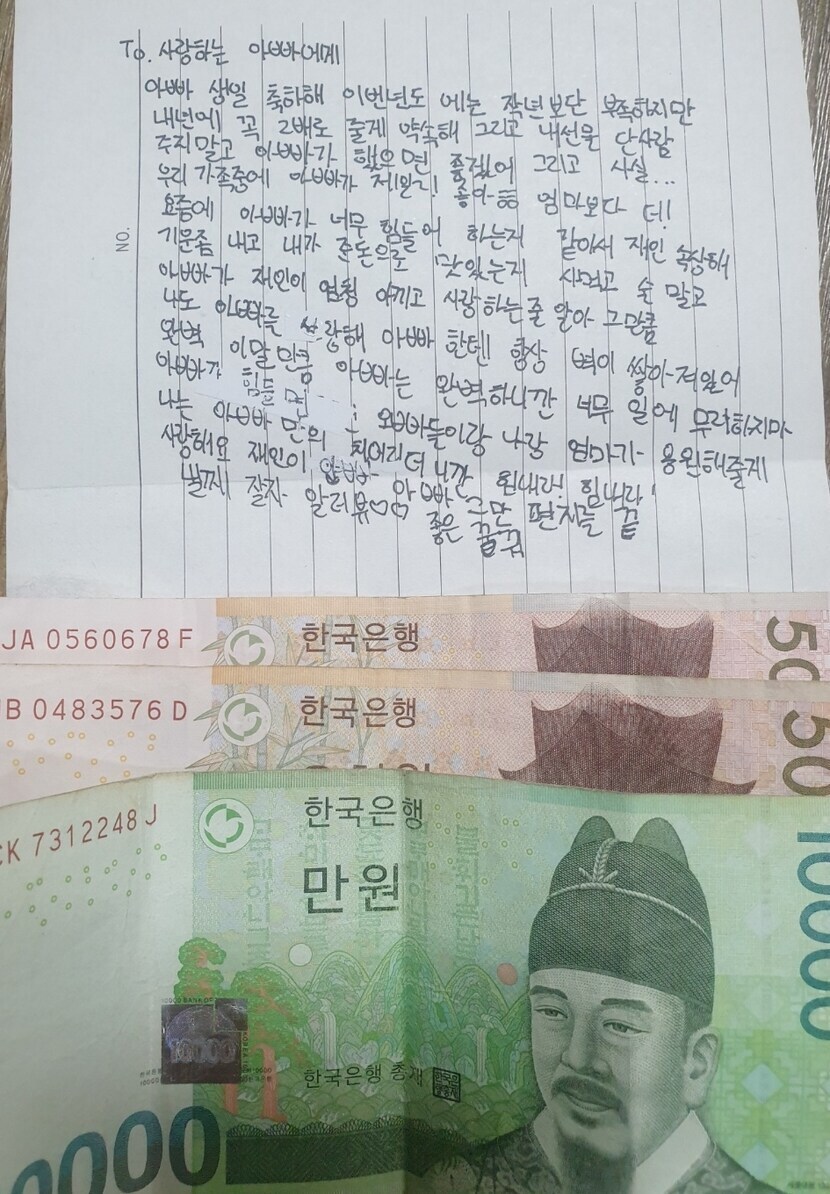 To. 사랑하는 아빠에게
아빠 생일 축하해 이번년도 에는 작년보단 부족하지만
내년에 꼭 2배로 줄게 약속해 그리고 내선물 단사람
주지말고 아빠가 했으면 좋겠어 그리고 사실...
우리 가족중에 아빠가 제일 좋아 엄마보다 더!
요즘에 아빠가 너무 힘들어 하는게 같아서 재인 속상해
기운좀 내고 내가 준돈으로 맛있는게 사먹고 술 말고
아빠가 재인이 엄청 아끼고 사랑하는줄 알아 그만큼
나도 아빠를 사랑해 아빠 한테 항상 벽이 쌓아져일어
완벽 이말만큼 아빠는 완벽하니깐 너무 일에 무리하지마
아빠가 힘들면 오빠들이랑 나랑 엄마가 응원해줄게
나는 아빠 만의 치어리더 니깐 힘내라! 힘내라!
사랑해요 재인이 아빠 그만 편지를 끝
낼께 잘자 알러뷰♡♡ 좋은 꿈꿔
NO.
JA 0560678 F
한국은행
50
B 0483576 D
한국은행
50
CK 7312248 J
한국은행
만원
10000
한국은행 총재
0000